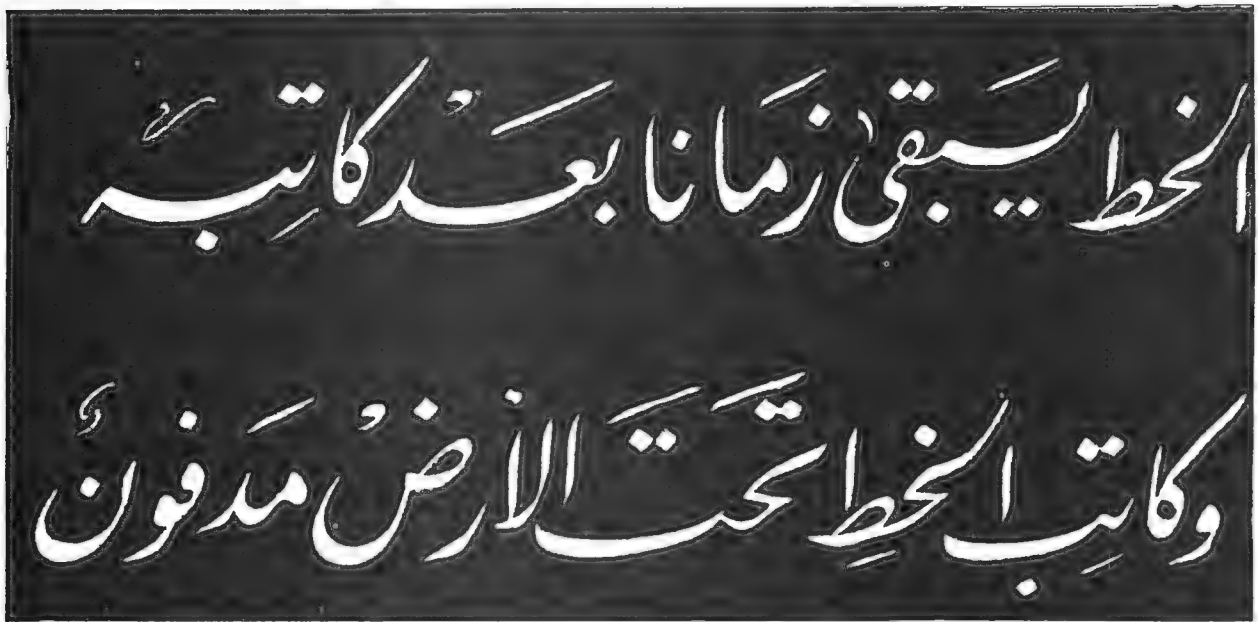 الخط يَبقىٰ زمَانا بعَدْ كاتِبهُ
وكاتِب الخطِ تَحتَ الأرضْ مَدفونٌ